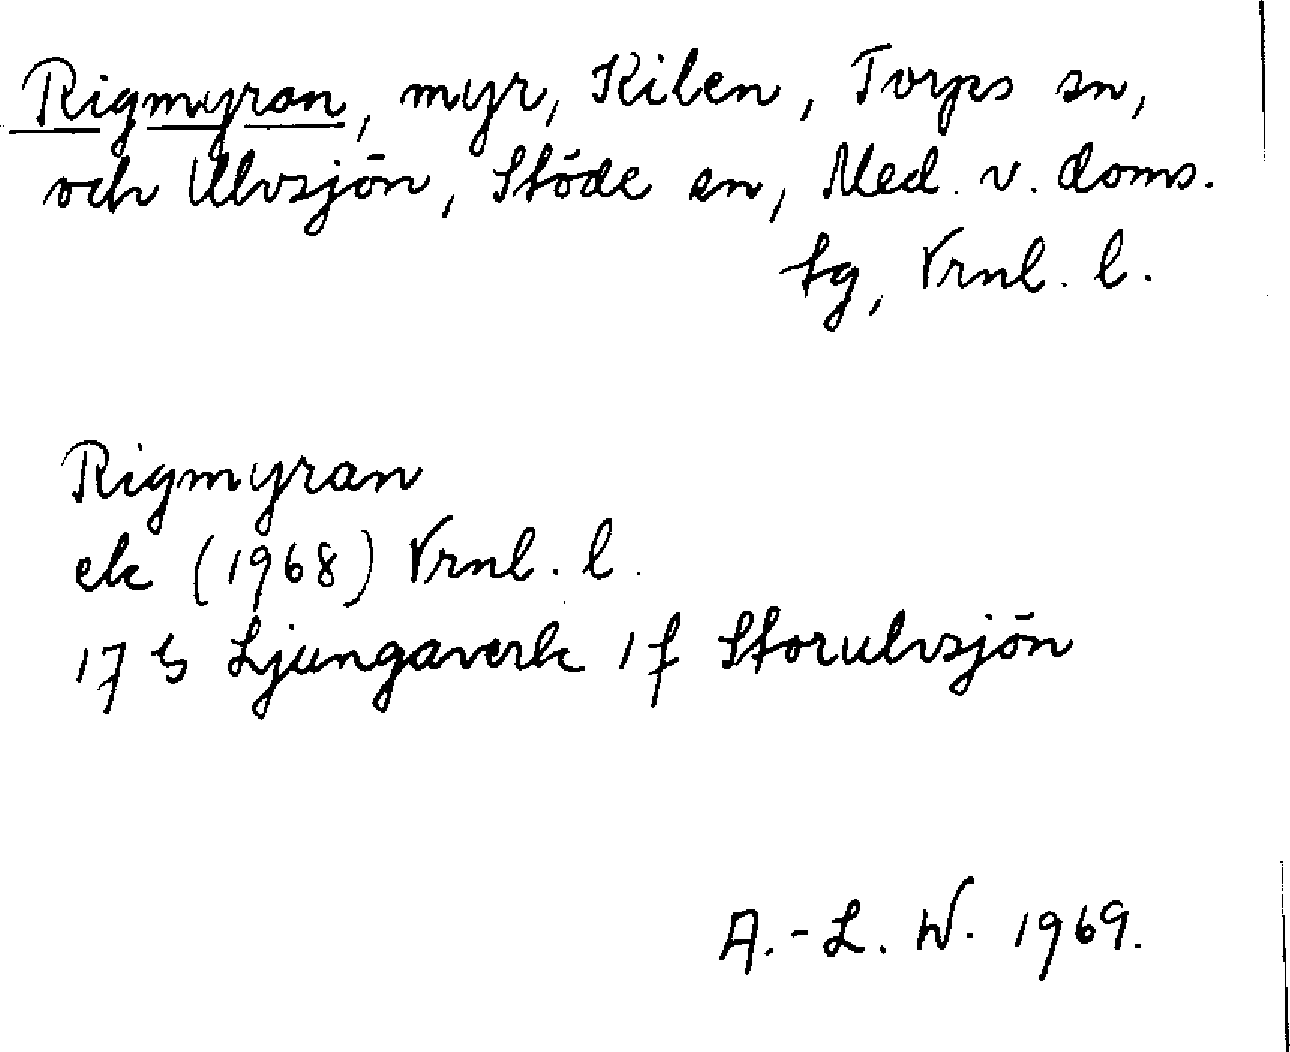 Rigmyran, myr, Kilen, Torps sn,
och Ulvsjön, Stöde sn, Med. v. doms.
sg, Vrnl. l.
Rigmyran
ek (1968) Vrnl. l.
17 G Ljungaverk 1 f Storulvsjön
A.-L. W. 1969.